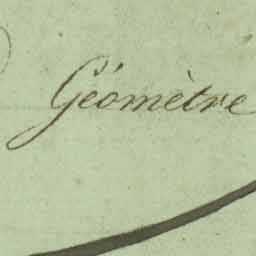 Géomètre